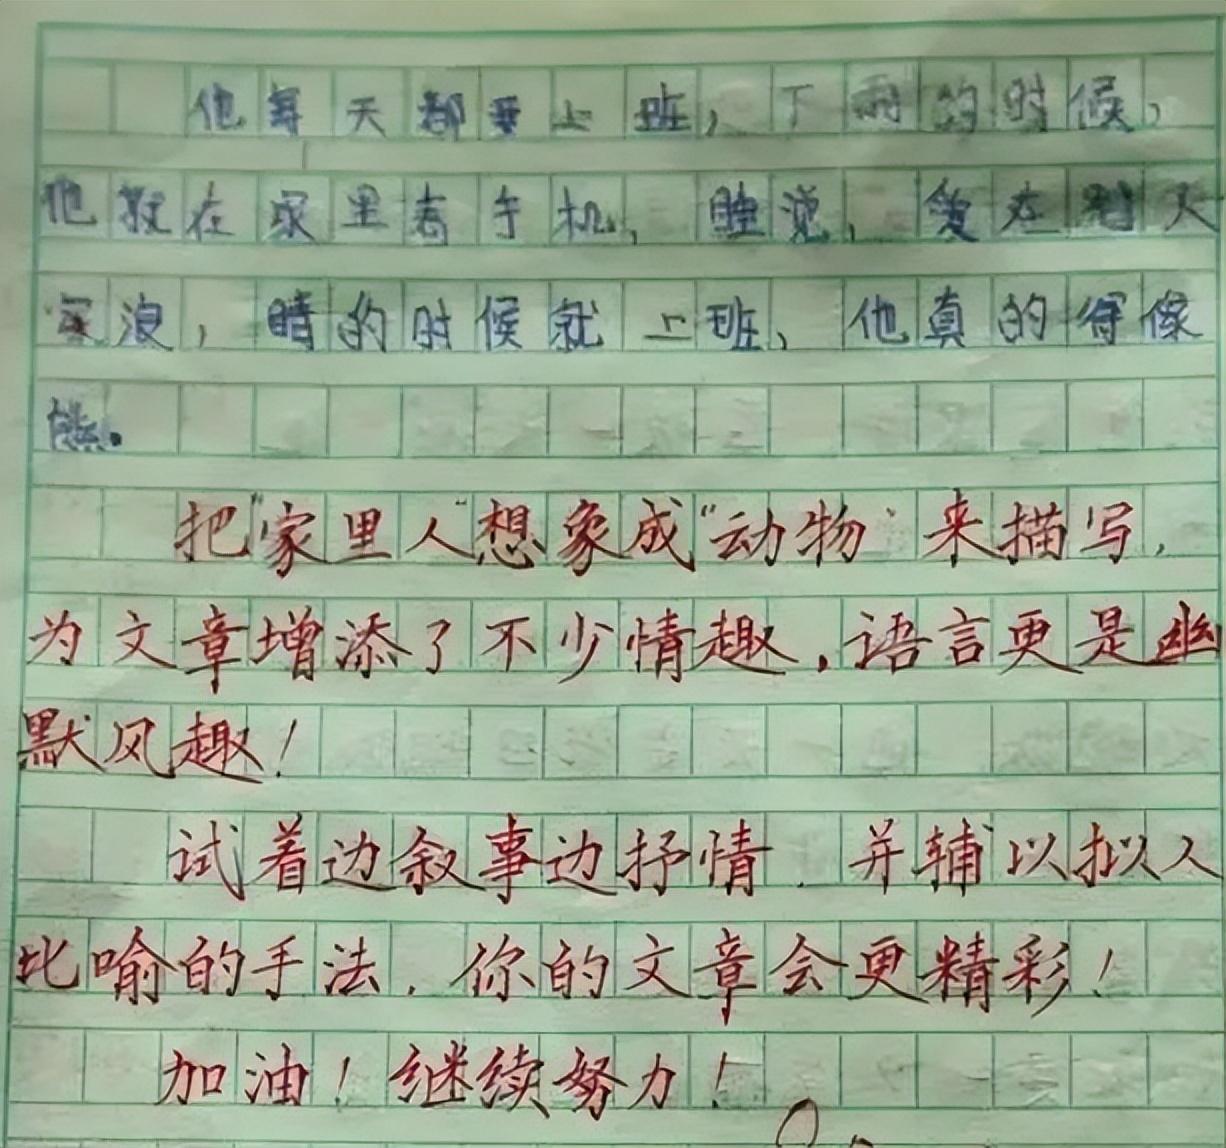 他每天都要上班，下雨的时候，
他就在家里看手机，睡觉，
浪，晴的时候就上班，他真的得像
熊。
把"家里人"想象成"动物"来描写，
为文章增添了不少情趣，语言更是幽
默风趣！
试着边叙事边抒情，并辅以拟人
比喻的手法，你的文章会更精彩！
加油！继续努力！